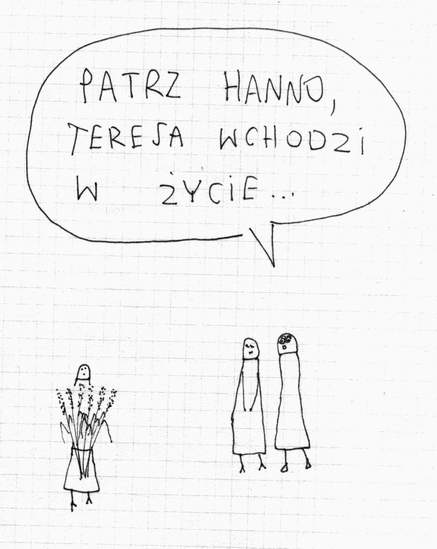 PATRZ HANNO,
TERESA WCHODZI
W ŻYCIE...